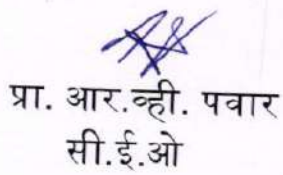 प्रा. आर.व्ही. पवार
सी.ई.ओ